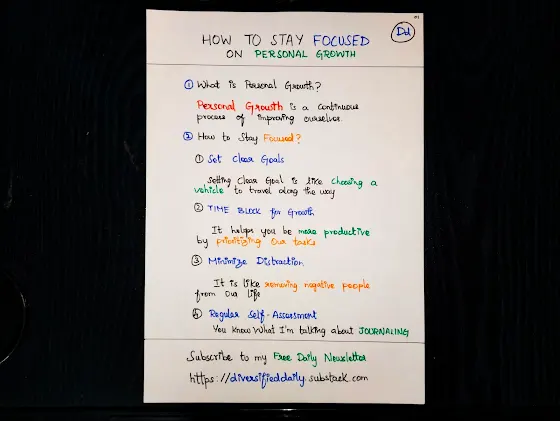 01
Dd
HOW TO STAY FOCUSED
ON PERSONAL GROWTH
① What is Personal Growth?
Personal Growth is a continuous
process of improving ourselves.
② How to Stay Focused?
① Set Clear Goals
Setting Clear Goal is like choosing a
vehicle to travel along the way
② TIME BLOCK for Growth
It helps you be more productive
by prioritizing our tasks
③ Minimize Distraction
It is like removing negative people
from our life
④ Regular Self-Assessment
You know What I'm talking about JOURNALING
Subscribe to my Free Daily Newsletter
https://diversifieddaily.substack.com